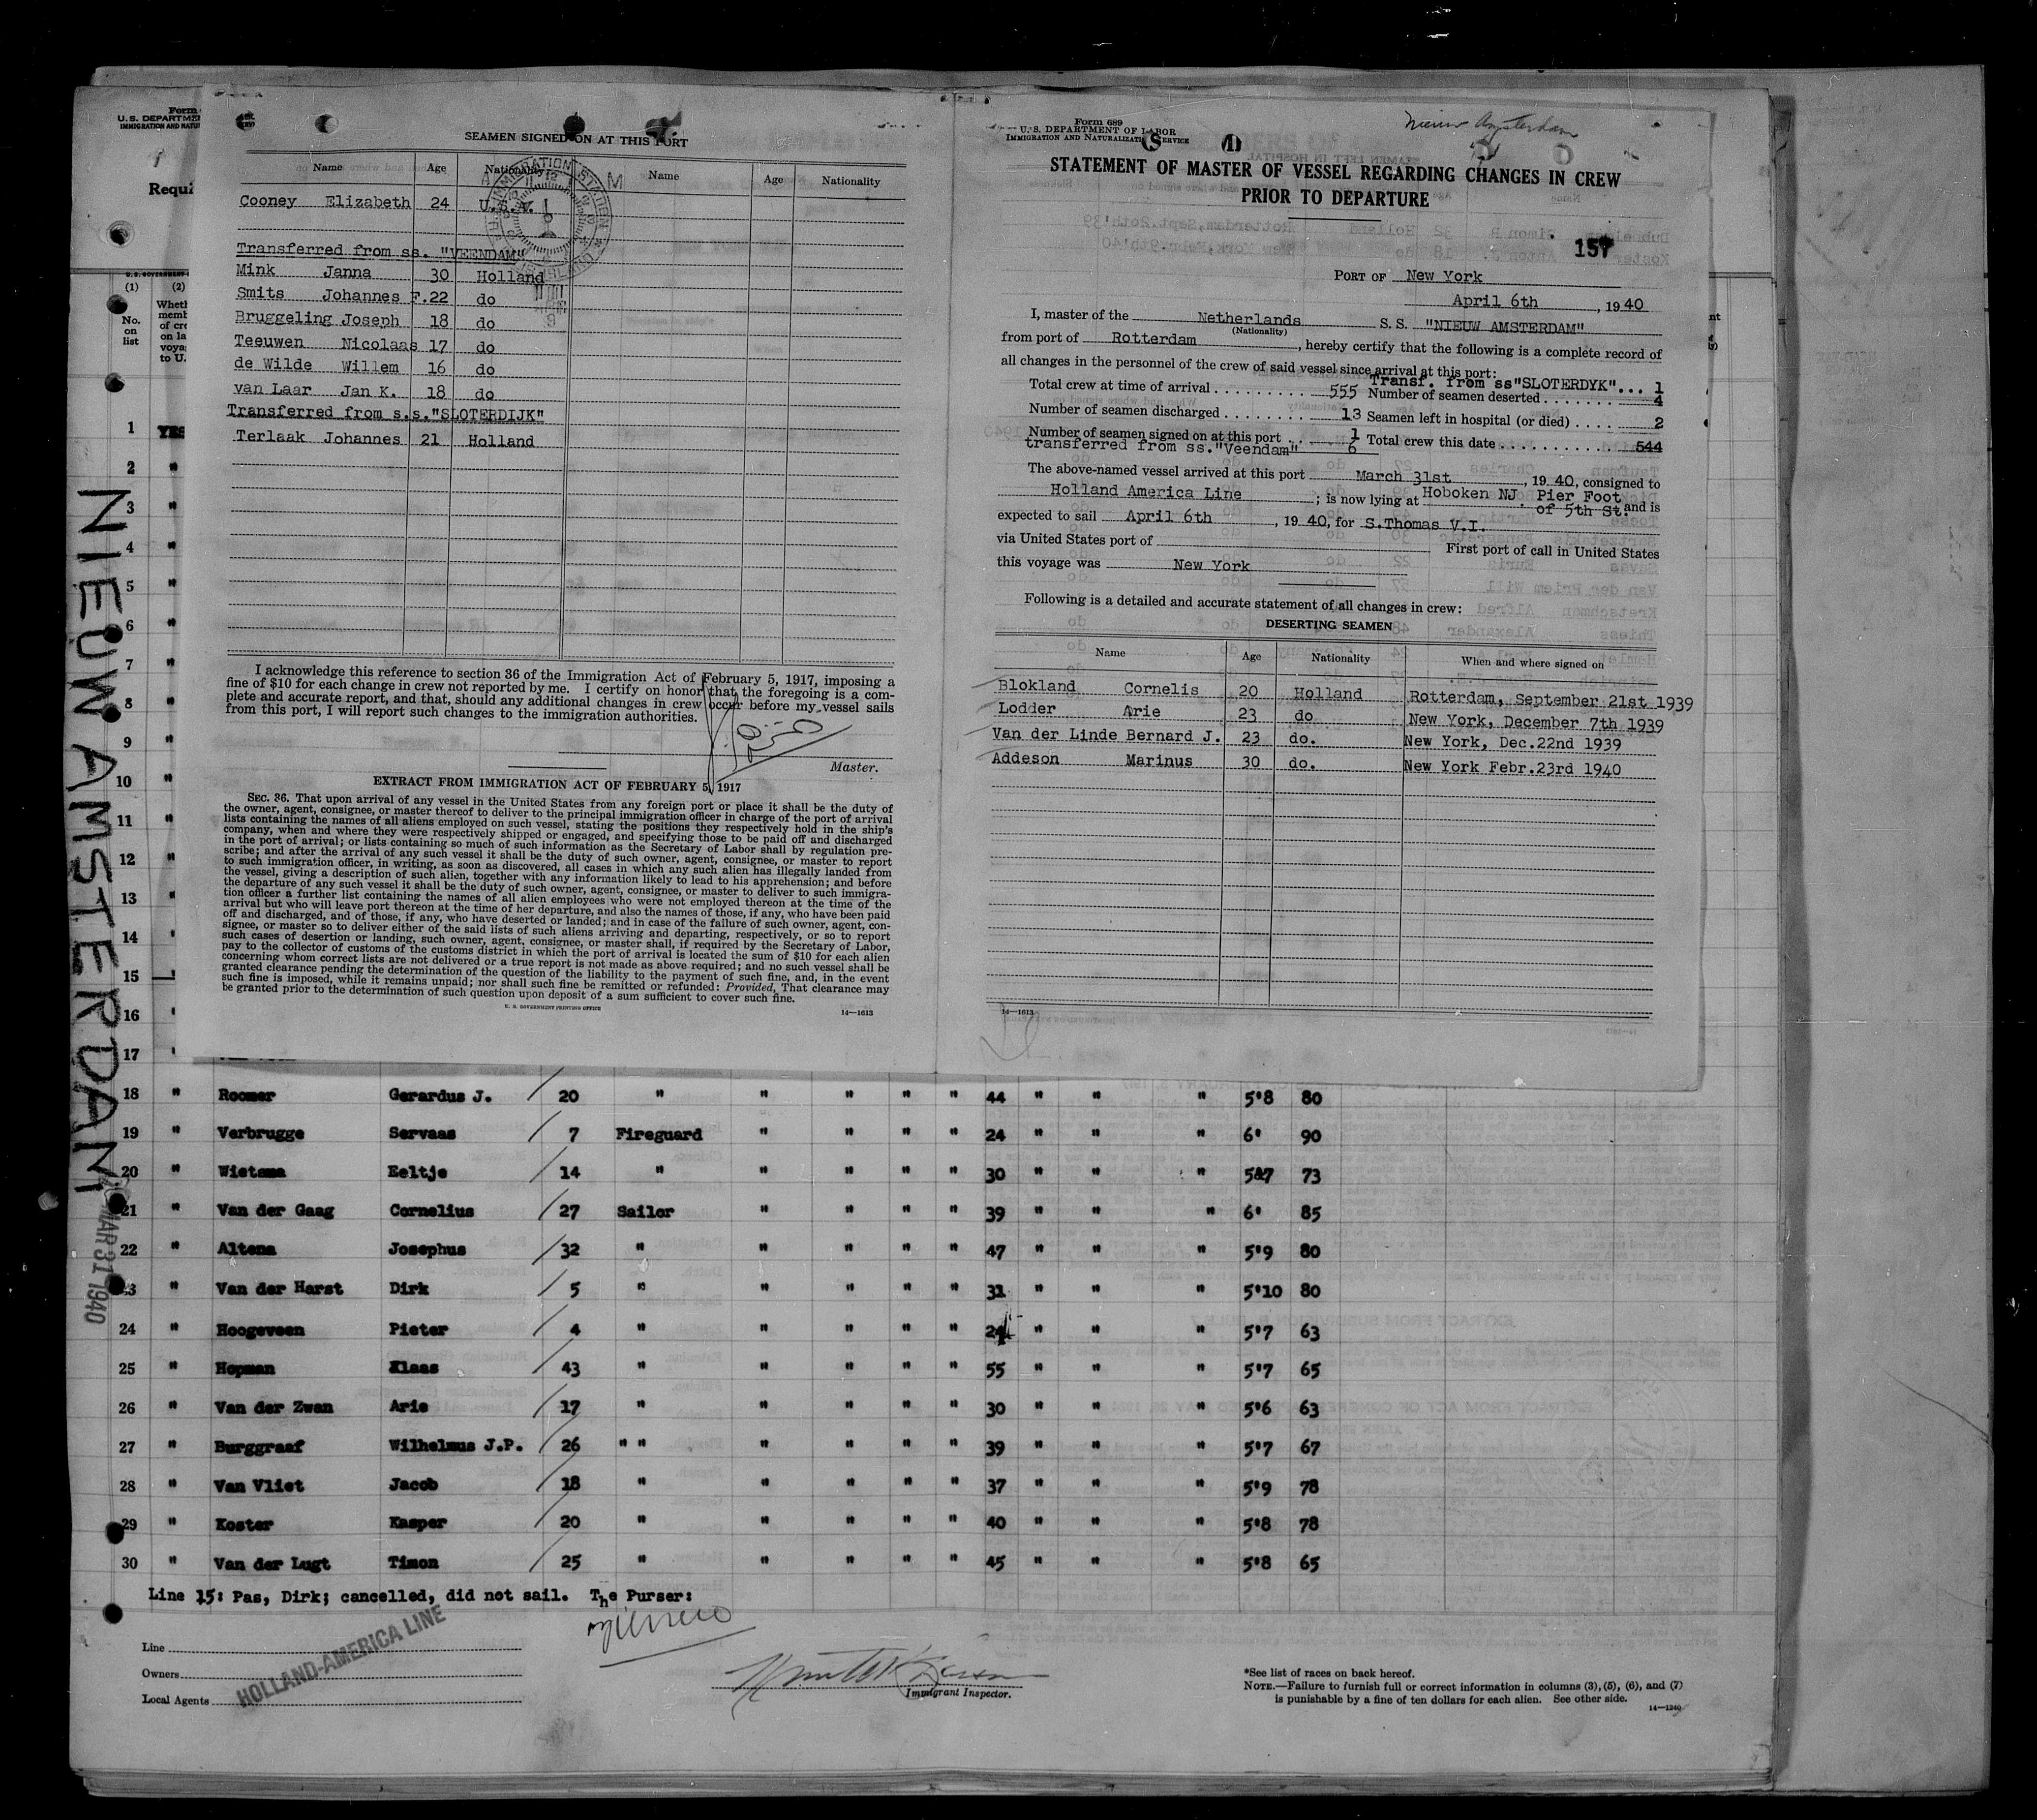 Form
U.S. DEPARTME
IMMIGRATION AND NATU
Requi
(1) (2)
No. on list
Wheth
memb
of cre
on la
voya
to U.
SEAMEN SIGNED ON AT THIS PORT
Name Age Nationality Name Age Nationality
Cooney Elizabeth 24 U.S.A.
Transferred from ss. "VEENDAM"
Mink Janna 30 Holland
Smits Johannes F. 22 do
Bruggeling Joseph 18 do
Teeuwen Nicolaas 17 do
de Wilde Willem 16 do
van Laar Jan K. 18 do
Transferred from s.s."SLOTERDIJK"
Terlaak Johannes 21 Holland
I acknowledge this reference to section 36 of the Immigration Act of February 5, 1917, imposing a
fine of $10 for each change in crew not reported by me. I certify on honor that the foregoing is a com-
plete and accurate report, and that, should any additional changes in crew occur before my vessel sails
from this port, I will report such changes to the immigration authorities.
Master.
EXTRACT FROM IMMIGRATION ACT OF FEBRUARY 5, 1917
SEC. 36. That upon arrival of any vessel in the United States from any foreign port or place it shall be the duty of
the owner, agent, consignee, or master thereof to deliver to the principal immigration officer in charge of the port of arrival
lists containing the names of all aliens employed on such vessel, stating the positions they respectively hold in the ship's
company, when and where they were respectively shipped or engaged, and specifying those to be paid off and discharged
in the port of arrival; or lists containing so much of such information as the Secretary of Labor shall by regulation pre-
scribe; and after the arrival of any such vessel it shall be the duty of such owner, agent, consignee, or master to report
to such immigration officer, in writing, as soon as discovered, all cases in which any such alien has illegally landed from
the vessel, giving a description of such alien, together with any information likely to lead to his apprehension; and before
the departure of any such vessel it shall be the duty of such owner, agent, consignee, or master to deliver to such immigra-
tion officer a further list containing the names of all alien employees who were not employed thereon at the time of the
arrival but who will leave port thereon at the time of her departure, and also the names of those, if any, who have been paid
off and discharged, and of those, if any, who have deserted or landed; and in case of the failure of such owner, agent, con-
signee, or master so to deliver either of the said lists of such aliens arriving and departing, respectively, or so to report
such cases of desertion or landing, such owner, agent, consignee, or master shall, if required by the Secretary of Labor,
pay to the collector of customs of the customs district in which the port of arrival is located the sum of $10 for each alien
concerning whom correct lists are not delivered or a true report is not made as above required; and no such vessel shall be
granted clearance pending the determination of the question of the liability to the payment of such fine, and, in the event
such fine is imposed, while it remains unpaid; nor shall such fine be remitted or refunded: Provided, That clearance may
be granted prior to the determination of such question upon deposit of a sum sufficient to cover such fine.
U. S. GOVERNMENT PRINTING OFFICE 14—1613
Form 689
U. S. DEPARTMENT OF LABOR
IMMIGRATION AND NATURALIZATION SERVICE
Nieuw Amsterdam
STATEMENT OF MASTER OF VESSEL REGARDING CHANGES IN CREW
PRIOR TO DEPARTURE
157
PORT OF New York
April 6th, 1940
I, master of the Netherlands S. S. "NIEUW AMSTERDAM"
(Nationality)
from port of Rotterdam, hereby certify that the following is a complete record of
all changes in the personnel of the crew of said vessel since arrival at this port:
Transf. from ss"SLOTERDYK"... 1
Total crew at time of arrival . . . . . . . . . 555 Number of seamen deserted . . . . . . . 4
Number of seamen discharged . . . . . . . . 13 Seamen left in hospital (or died) . . . . 2
Number of seamen signed on at this port . . 1 Total crew this date . . . . . . . . . . 544
transferred from ss."Veendam" 6
The above-named vessel arrived at this port March 31st, 1940, consigned to
Holland America Line; is now lying at Hoboken NJ. Pier Foot of 5th St. and is
expected to sail April 6th, 1940, for S.Thomas V.I.
via United States port of First port of call in United States
this voyage was New York
Following is a detailed and accurate statement of all changes in crew:
DESERTING SEAMEN
Name Age Nationality When and where signed on
Blokland Cornelis 20 Holland Rotterdam, September 21st 1939
Lodder Arie 23 do New York, December 7th 1939
Van der Linde Bernard J. 23 do. New York, Dec.22nd 1939
Addeson Marinus 30 do. New York Febr.23rd 1940
14—1613
NIEUW AMSTERDAM
MAR 31 1940
1 YES
2 "
3 "
4 "
5 "
6 "
7 "
8 "
9 "
10 "
11 "
12 "
13 "
14 "
15
16 "
17 "
18 " Roomer Gerardus J. 20 " " " " " 44 " " " 5'8 80
19 " Verbrugge Servaas 7 Fireguard " " " " 24 " " " 6' 90
20 " Wietsma Eeltje 14 " " " " " 30 " " " 5'7 73
21 " Van der Gaag Cornelius 27 Sailor " " " " 39 " " " 6' 85
22 " Altena Josephus 32 " " " " " 47 " " " 5'9 80
23 " Van der Harst Dirk 5 " " " " " 31 " " " 5'10 80
24 " Hoogeveen Pieter 4 " " " " " 24 " " " 5'7 63
25 " Hopman Klaas 43 " " " " " 55 " " " 5'7 65
26 " Van der Zwan Arie 17 " " " " " 30 " " " 5'6 63
27 " Burggraaf Wilhelmus J.P. 26 " " " " " " 39 " " " 5'7 67
28 " Van Vliet Jacob 18 " " " " " 37 " " " 5'9 78
29 " Koster Kasper 20 " " " " " 40 " " " 5'8 78
30 " Van der Lugt Timon 25 " " " " " 45 " " " 5'8 65
Line 15: Pas, Dirk; cancelled, did not sail. The Purser:
Line
Owners
Local Agents
HOLLAND-AMERICA LINE
Immigrant Inspector.
*See list of races on back hereof.
NOTE.—Failure to furnish full or correct information in columns (3), (5), (6), and (7)
is punishable by a fine of ten dollars for each alien. See other side.
14—1240